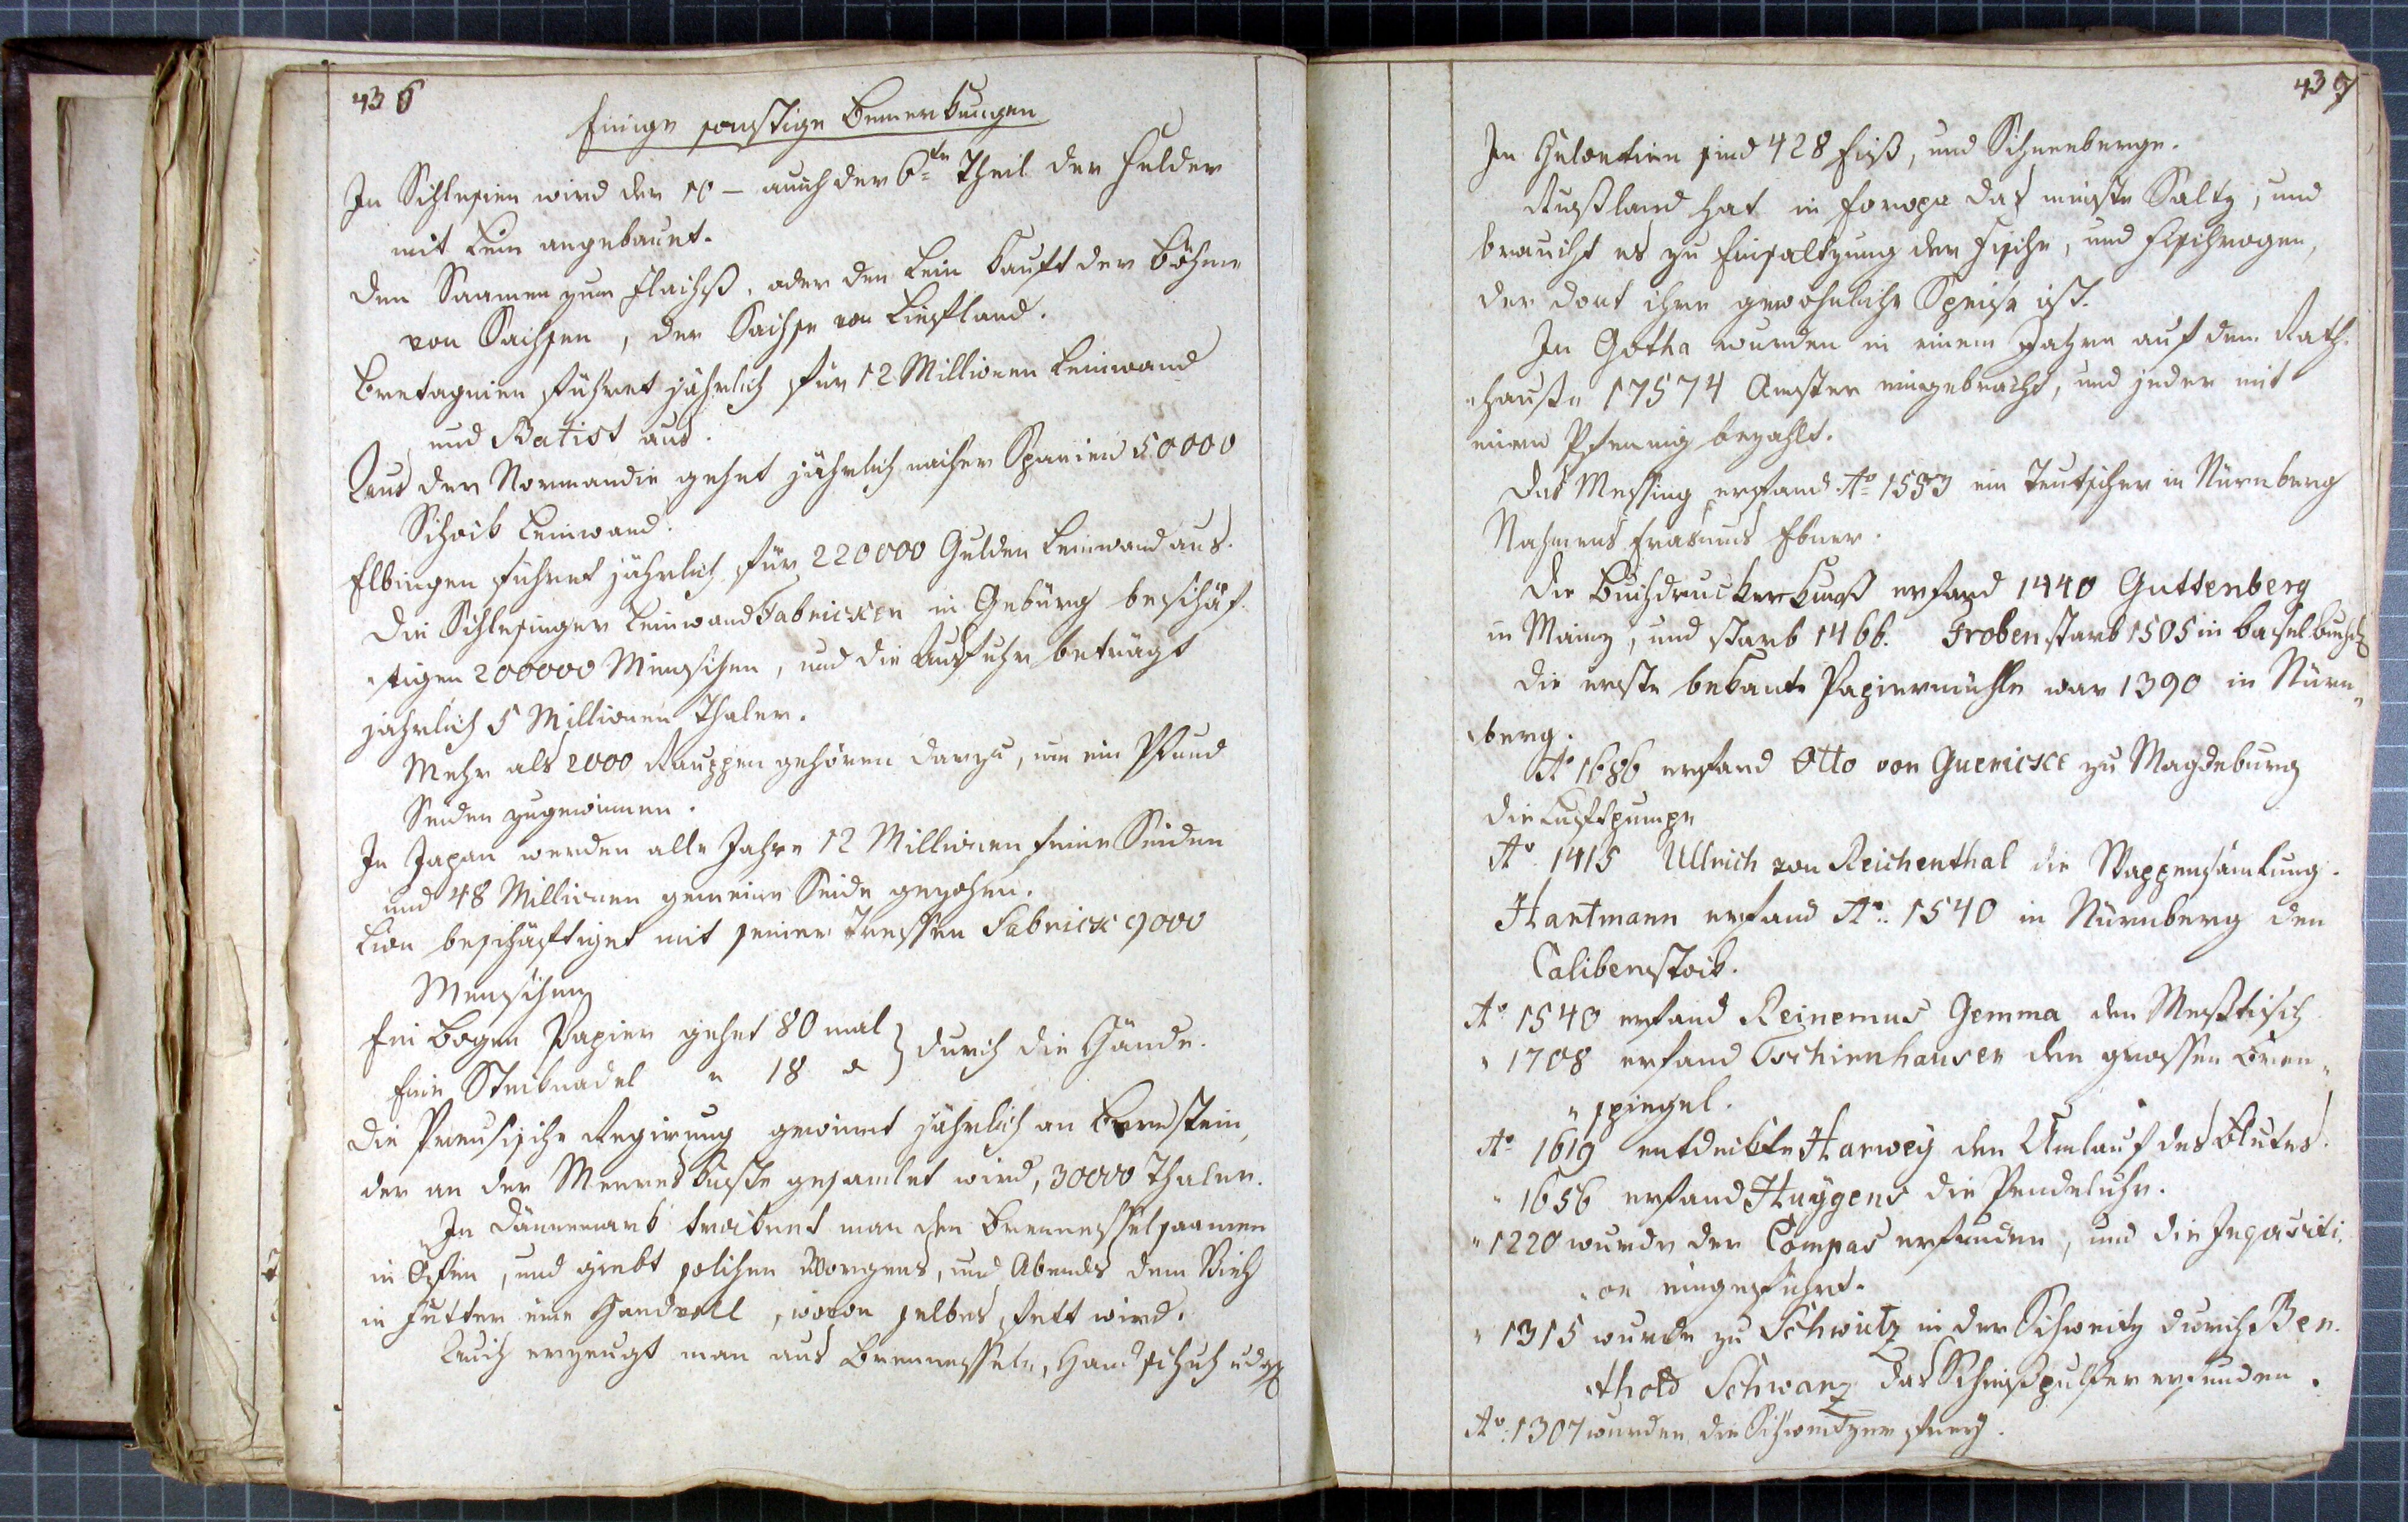 436
Einige sonstige Bemerkungen
In Schlesien wird der 10 – auch der 6te Theil der Felder
mit Lein angebauet.
Den Saamen zum Flachß, oder den Lein kauft der Böhme
von Sachsen, der Sachse von Liefland.
Bretagnien führet jährlich für 12 Millionen Leinwand
und Batist aus.
Aus der Normandie gehet jährlich nacher Spanien 50000
Schock Leinwand.
Elbingen führet jährlich für 220000 Gulden Leinwand aus.
Die Schlesinger Leinwand Fabricken in Gebürg beschäf-
„tigen 200000 Menschen, und die Ausfuhr beträgt
jährlich 5 Millionen Thaler.
Mehr als 2000 Rauppen gehören darzu, um ein Pfund
Seiden zugewinnen.
In Japan werden alle Jahre 12 Millionen feine Seiden
und 48 Millionen gemeine Seide gezohen.
Lion beschäftiget mit seiner Tressen Fabrick 9000
Menschen
Ein Bogen Papier gehet 80 mal } durch die Hände.
Eine Stecknadel " 18 "
Die Preusische Regirung gewinnt jährlich an Bernstein,
der an der Meeres Küste gesamlet wird, 30000 Thaler.
In Dännemark trocknet man den Brennesselsaamen
in Ofen, und giebt solchen Morgens, und Abends dem Vieh
in Futter eine Handvoll, wovon selbes fett wird.
Auch erzeugt man aus Brennesseln, Handschuh udgl
437
In Helvetien sind 428 Eiß, und Schneeberge.
Rußland hat in Europa das meiste Saltz, und
braucht es zu Einsaltzung der Fische, und Fischrogen,
der dort ihre gewöhnliche Speise ist.
In Gotha wurden in einem Jahre auf dem Rath-
„hauß" 17574 Amster eingebracht, und jeder mit
einen Pfennig bezahlt.
Das Messing erfand Ao 1553 ein Teutscher in Nürnberg
Nahmens Erasmus Ebner.
Die Buchdruckerkunst erfand 1440 Guttenberg
in Mainz, und starb 1466. Froben starb 1505 in Basel
die erste bekante Papiermühle war 1390 in Nürn„
„berg.
Ao 1686 erfand Otto von Guericke zu Magdeburg
die Luftpumpe
Ao 1415 Ullrich von Reichenthal die Wappensamlung.
Hartmann erfand Ao. 1540 in Nürnberg den
Caliberstock.
Ao 1540 erfand Reinerus Gemma den Meßtisch
" 1708 erfand Tschirnhauser den grossen Bren„
„spiegel.
Ao 1619 entdeckte Harwey den Umlauf des Blutes.
" 1656 erfand Huygens die Pendeluhr.
" 1220 wurde der Compas erfunden, und die Inquisiti„
„on eingeführt.
" 1315 wurde zu Schwitz in der Schweitz durch Ber-
„thold Schwarz das Schießpulfer erfunden.
Ao. 1307 wurden die Schweitzer frey.